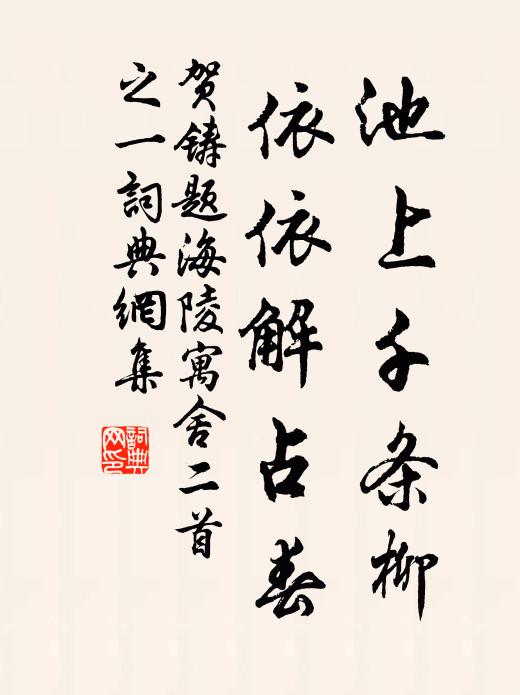 池上千条柳
依依解占春
贺铸题海陵寓舍二首
之一詞典網集
詞典網印